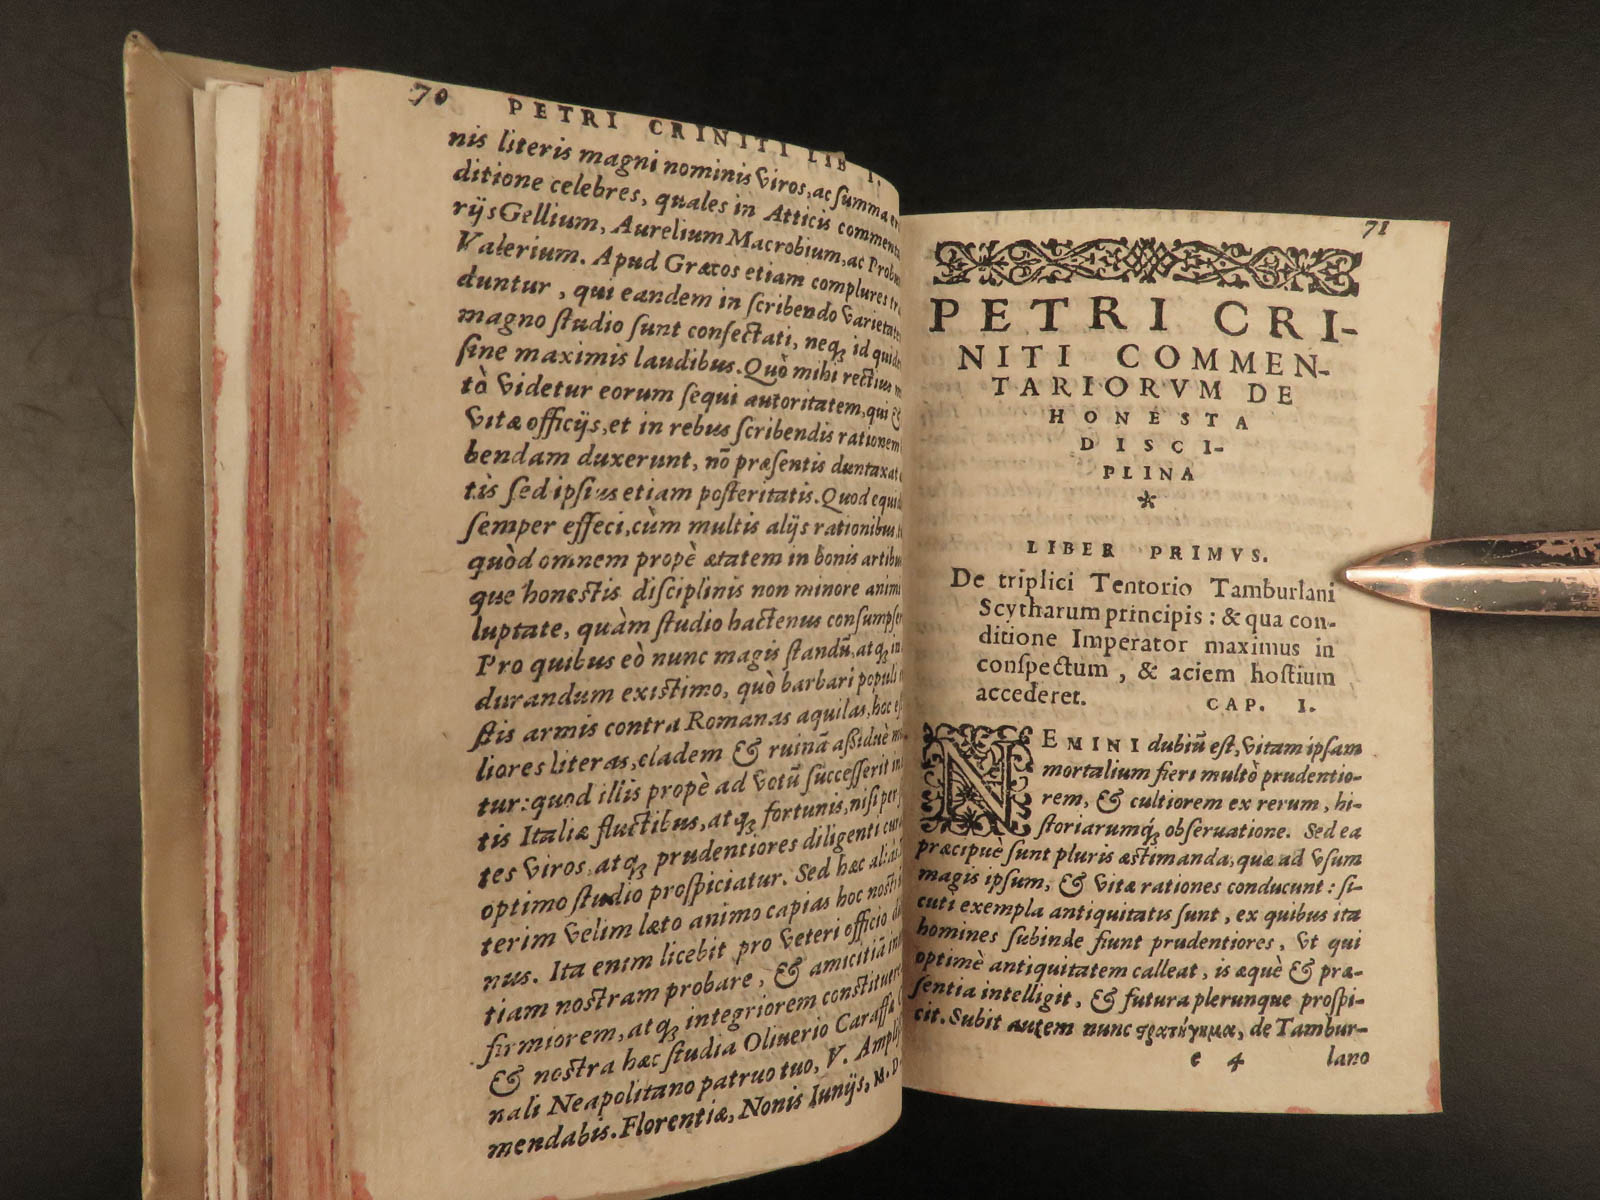 70 PETRI CRINITI LIB I.
nis literis magni nominis viros, ac summa
ditione celebres, quales in Atticis
rijs Gellium, Aurelium Macrobium, ac
Valerium. Apud Græcos etiam complures
duntur, qui eandem in scribendo
magno studio sunt consectati, neq; id
sine maximis laudibus. Quò mihi rectius
tò videtur eorum sequi autoritatem, qui &
vitæ officijs, et in rebus scribendis rationem
bendam duxerunt, nō præsentis duntaxat
tis sed ipsius etiam posteritatis. Quod
semper effeci, cùm multis alijs rationibus,
quòd omnem propè ætatem in bonis artibus
que honestis disciplinis non minore
luptate, quàm studio hactenus
Pro quibus eò nunc magis standū, atq;
durandum existimo, quò barbari populi
stis armis contra Romanas aquilas, hoc
liores literas, cladem & ruinā assiduè
tur: quod illis propè ad votū successerit
tis Italiæ fluctibus, atq; fortunis, nisi per
tes viros, atq; prudentiores diligenti
optimo studio prospiciatur. Sed hæc
terim velim læto animo capias hoc nostri
nus. Ita enim licebit pro veteri officio
tiam nostram probare, & amicitiā
firmiorem, atq; integriorem
& nostra hæc studia Oliuerio Caraffa
nali Neapolitano patruo tuo, V.
mendabis. Florentiæ, Nonis Iunijs, M. D
71
PETRI CRI-
NITI COMMEN-
TARIORVM DE
HONESTA
DISCI-
PLINA
*
LIBER PRIMVS.
De triplici Tentorio Tamburlani
Scytharum principis: & qua con-
ditione Imperator maximus in
conspectum, & aciem hostium
accederet. CAP. I.
NEMINI dubiū est, vitam ipsam
mortalium fieri multò prudentio-
rem, & cultiorem ex rerum, hi-
storiarumq; obseruatione. Sed ea
præcipuè sunt pluris æstimanda, quæ ad vsum
magis ipsum, & vitæ rationes conducunt: si-
cuti exempla antiquitatis sunt, ex quibus ita
homines subinde fiunt prudentiores, vt qui
optimè antiquitatem calleat, is æquè & præ-
sentia intelligit, & futura plerunque prospi-
cit. Subit autem nunc στρατήγημα, de Tambur-
e 4 lano